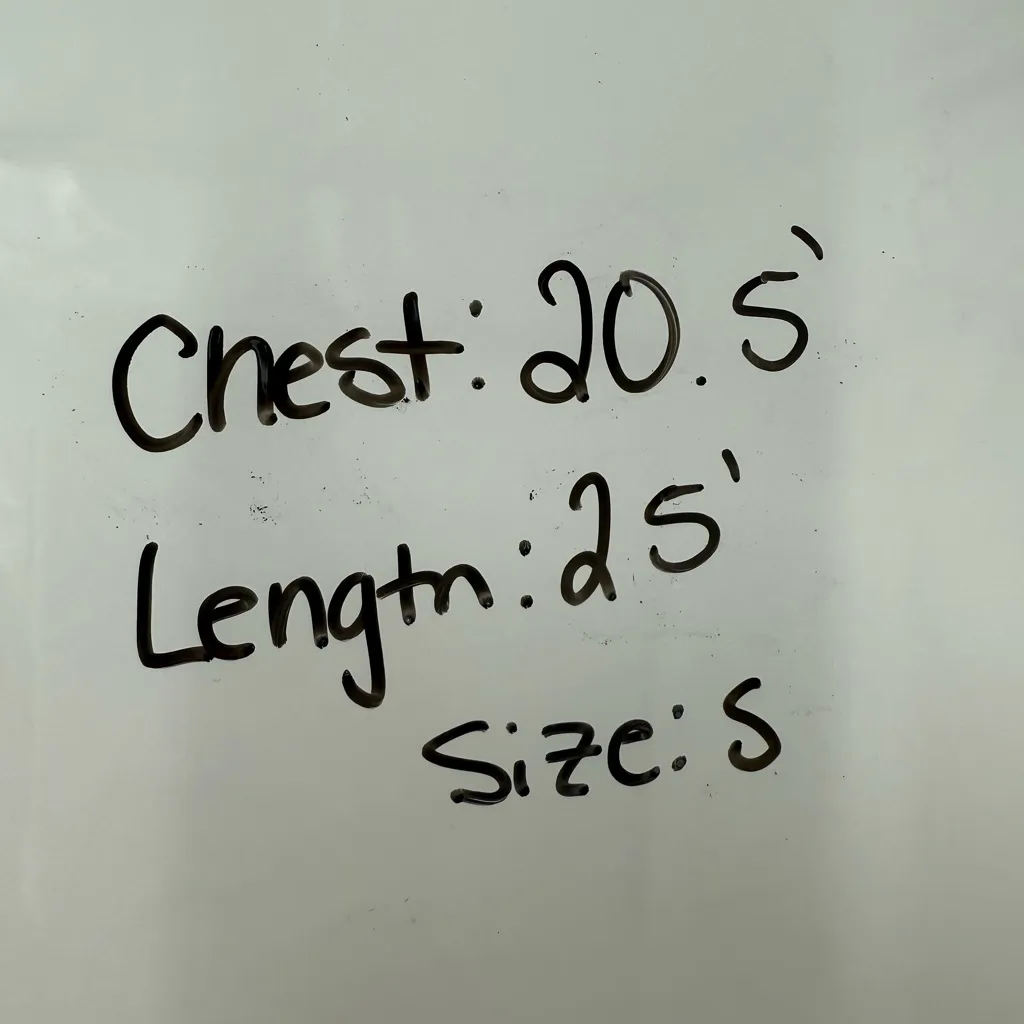 Chest: 20.5'
Length: 25'
Size: S